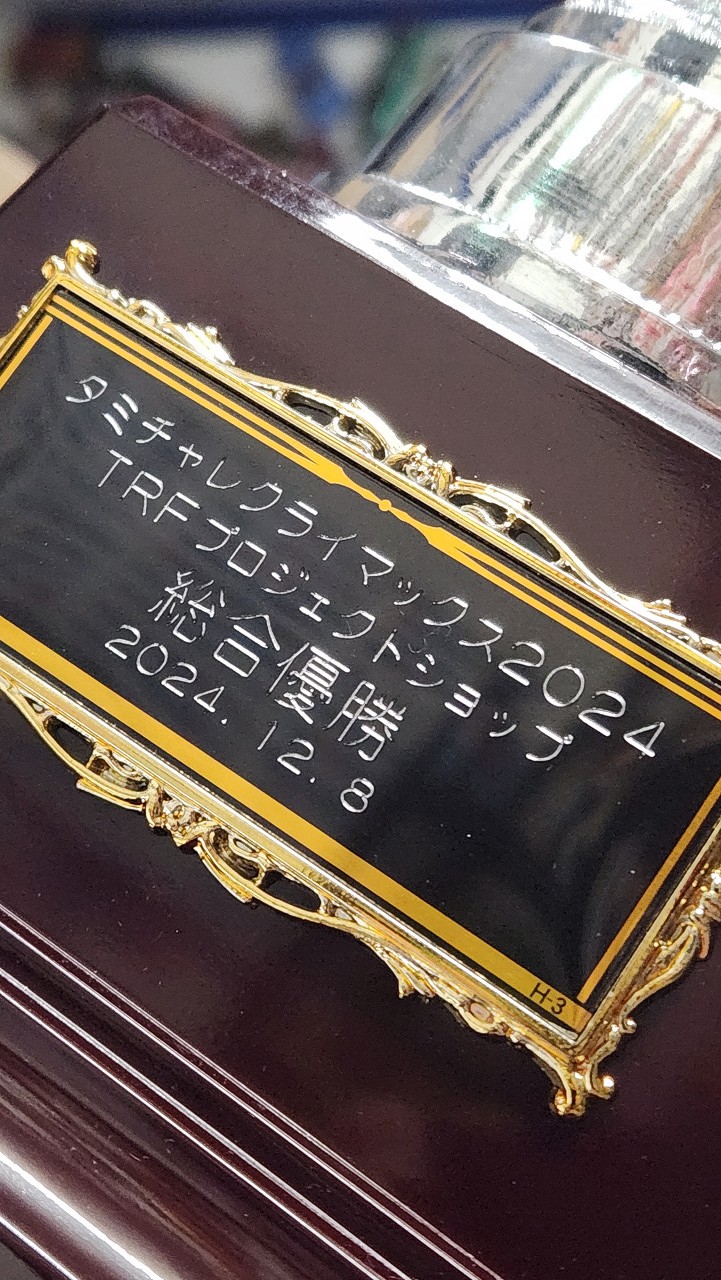 タミチャレクライマックス2024
TRFプロジェクトショップ
総合優勝
2024. 12. 8
H-3